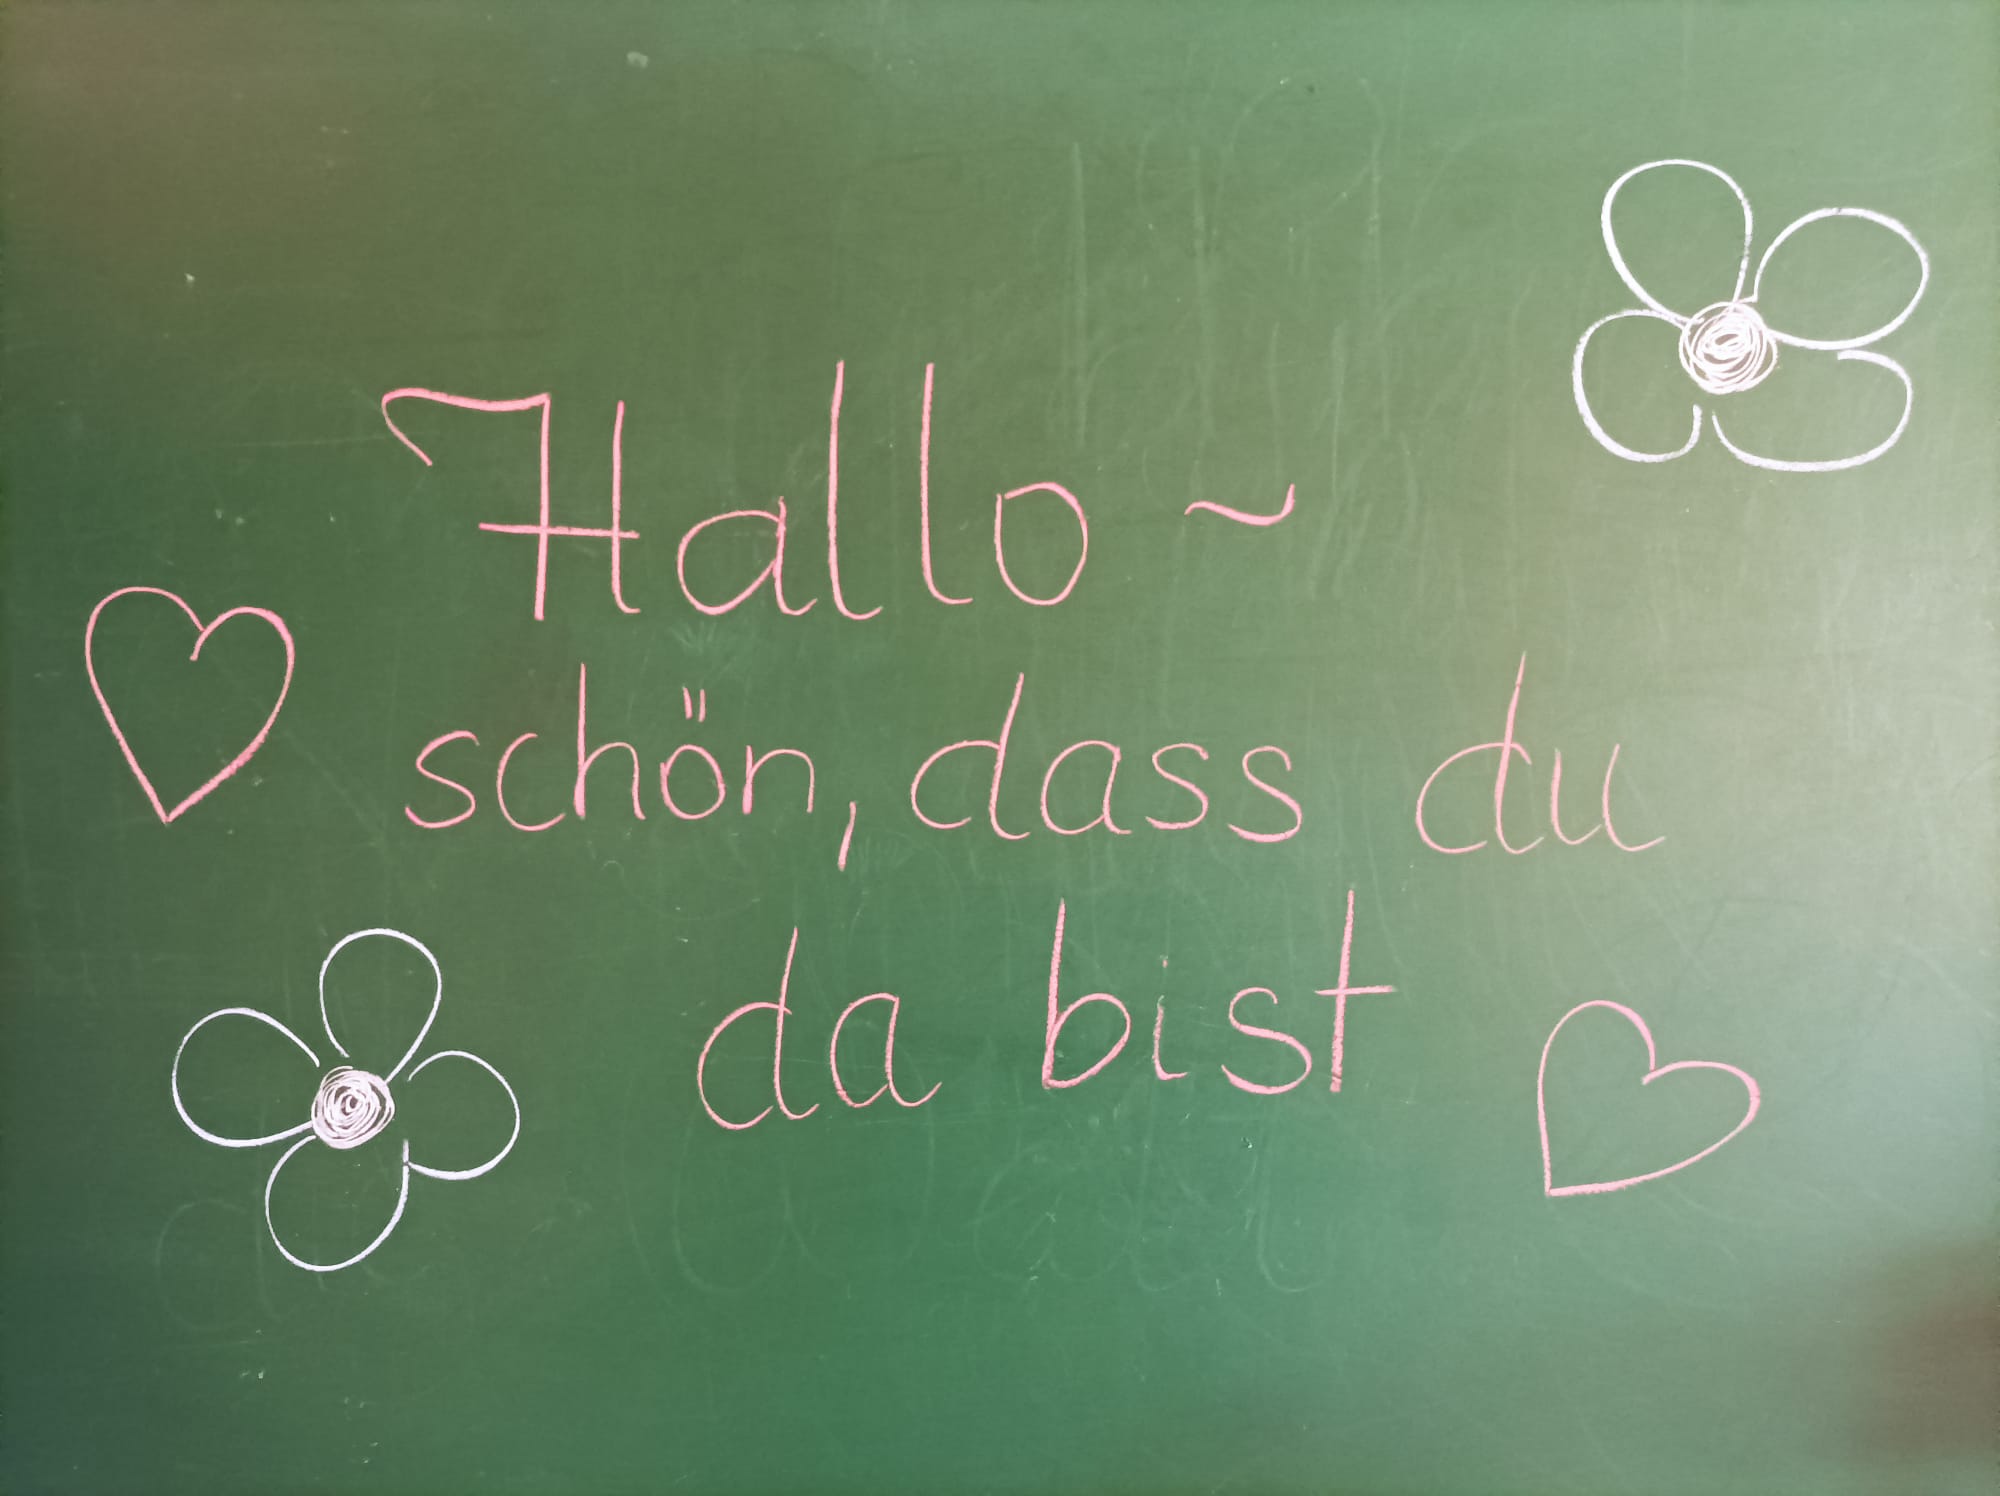 Hallo ~
schön, dass du
da bist